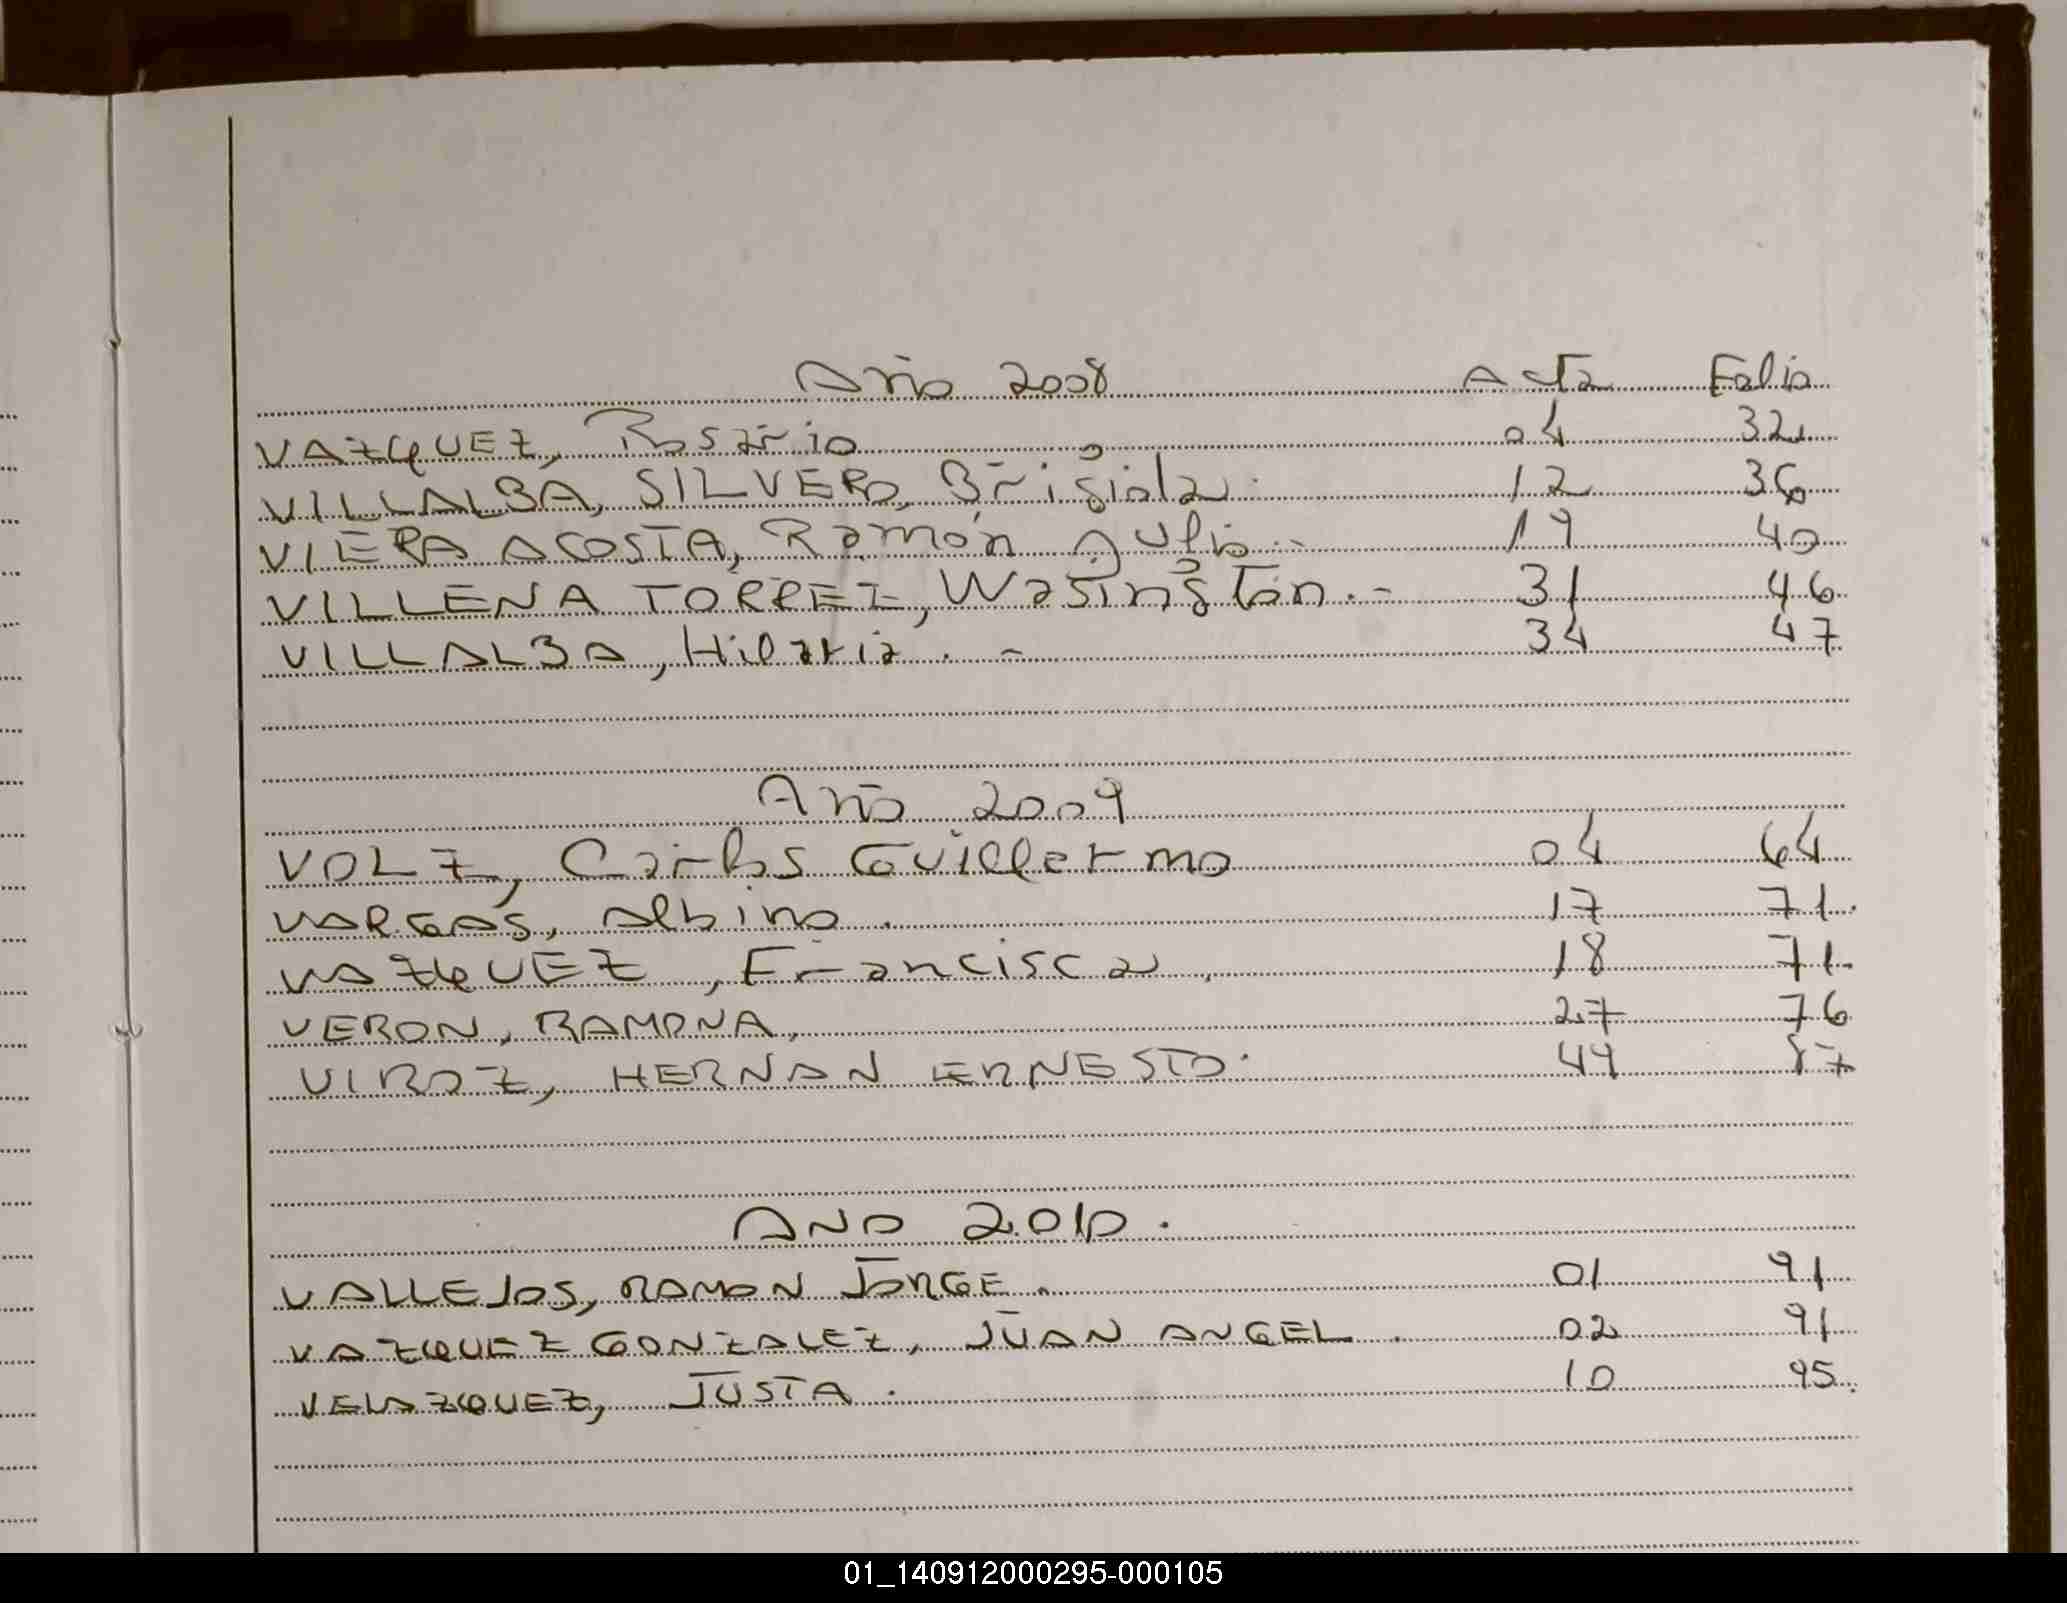 Año 2008 Acta Folio
VAZQUEZ, Rosario 04 32
VILLALBA, SILVERO, Brigida 12 36
VIERA ACOSTA, Ramón Julio.- 19 40
VILLENA TORREZ, Wasington.- 31 46
VILLALBA, Hilaria.- 34 47
Año 2009
VOLZ, Carlos Guillermo 04 64
VARGAS, Albino. 17 71.
VAZQUEZ, Francisca. 18 71.
VERON, RAMONA, 27 76
VIROZ, HERNAN ERNESTO. 49 87
AÑO 2010.
VALLEJOS, RAMON JORGE. 01 91
VAZQUEZ GONZALEZ, JUAN ANGEL. 02 91
VELAZQUEZ, JUSTA. 10 95.
01_140912000295-000105